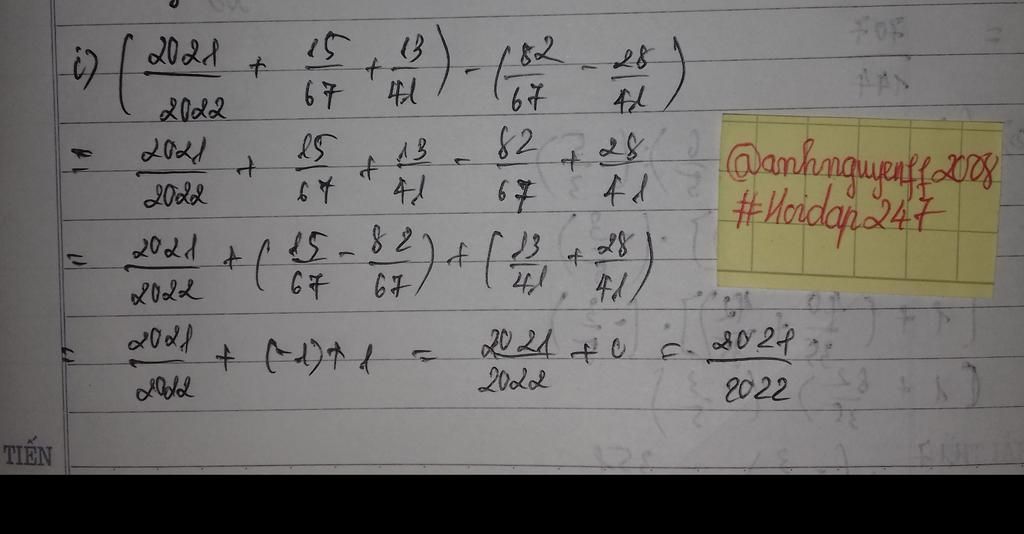 i) (2021/2022 + 15/67 + 13/41) - (82/67 - 28/41)
= 2021/2022 + 15/67 + 13/41 - 82/67 + 28/41
= 2021/2022 + (15/67 - 82/67) + (13/41 + 28/41)
= 2021/2022 + (-1) + 1 = 2021/2022 + 0 = 2021/2022
@anhnguyenff2008
#Hoidap247
TIẾN